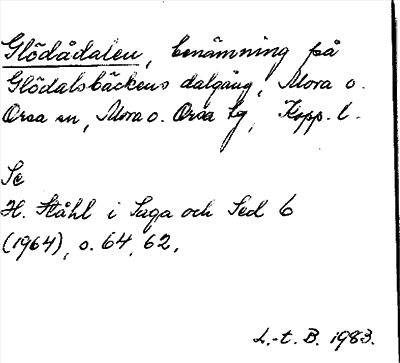 Glödådalen, benämning på
Glödalsbäckens dalgång, Mora o.
Orsa sn, Mora o. Orsa tg, Kopp. l.
Se
H. Ståhl i Saga och Sed 6
(1964), s. 64, 62.
L.-t. B. 1983.